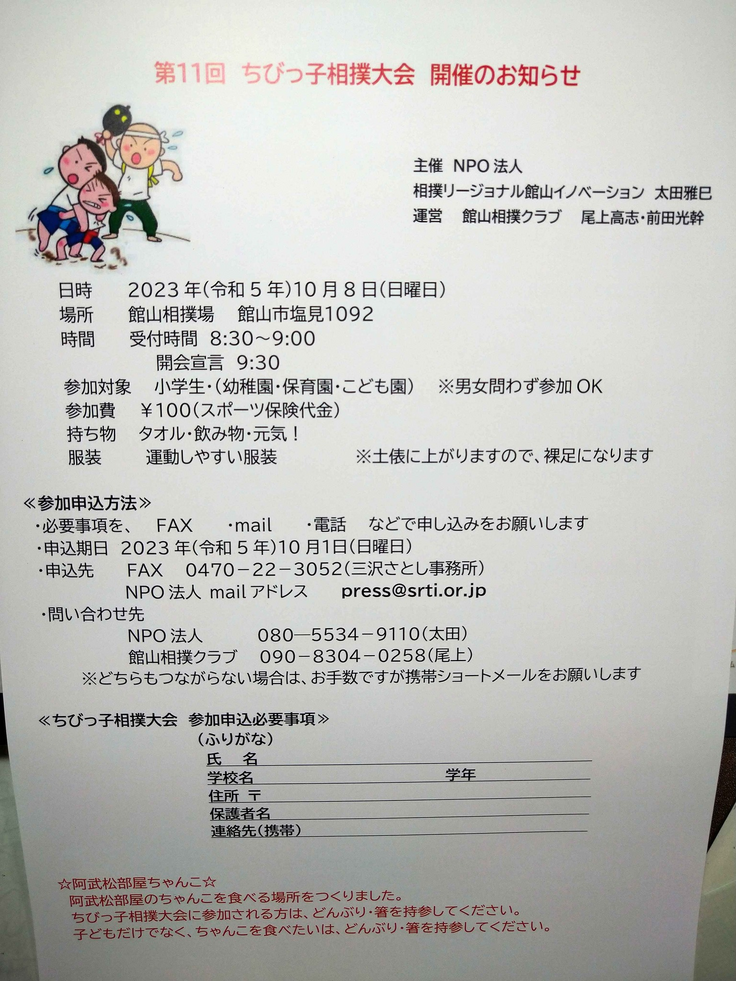 第11回 ちびっ子相撲大会 開催のお知らせ
主催 NPO法人
相撲リージョナル館山イノベーション 太田雅巳
運営 館山相撲クラブ 尾上高志・前田光幹
日時 2023年(令和5年)10月8日(日曜日)
場所 館山相撲場 館山市塩見1092
時間 受付時間 8:30～9:00
開会宣言 9:30
参加対象 小学生・(幼稚園・保育園・こども園) ※男女問わず参加OK
参加費 ￥100(スポーツ保険代金)
持ち物 タオル・飲み物・元気！
服装 運動しやすい服装 ※土俵に上がりますので、裸足になります
≪参加申込方法≫
・必要事項を、 FAX ・mail ・電話 などで申し込みをお願いします
・申込期日 2023年(令和5年)10月1日(日曜日)
・申込先 FAX 0470－22－3052(三沢さとし事務所)
NPO法人 mailアドレス press@srti.or.jp
・問い合わせ先
NPO法人 080―5534－9110(太田)
館山相撲クラブ 090－8304－0258(尾上)
※どちらもつながらない場合は、お手数ですが携帯ショートメールをお願いします
≪ちびっ子相撲大会 参加申込必要事項≫
(ふりがな)
氏 名
学校名 学年
住所 〒
保護者名
連絡先(携帯)
☆阿武松部屋ちゃんこ☆
阿武松部屋のちゃんこを食べる場所をつくりました。
ちびっ子相撲大会に参加される方は、どんぶり・箸を持参してください。
子どもだけでなく、ちゃんこを食べたいは、どんぶり・箸を持参してください。